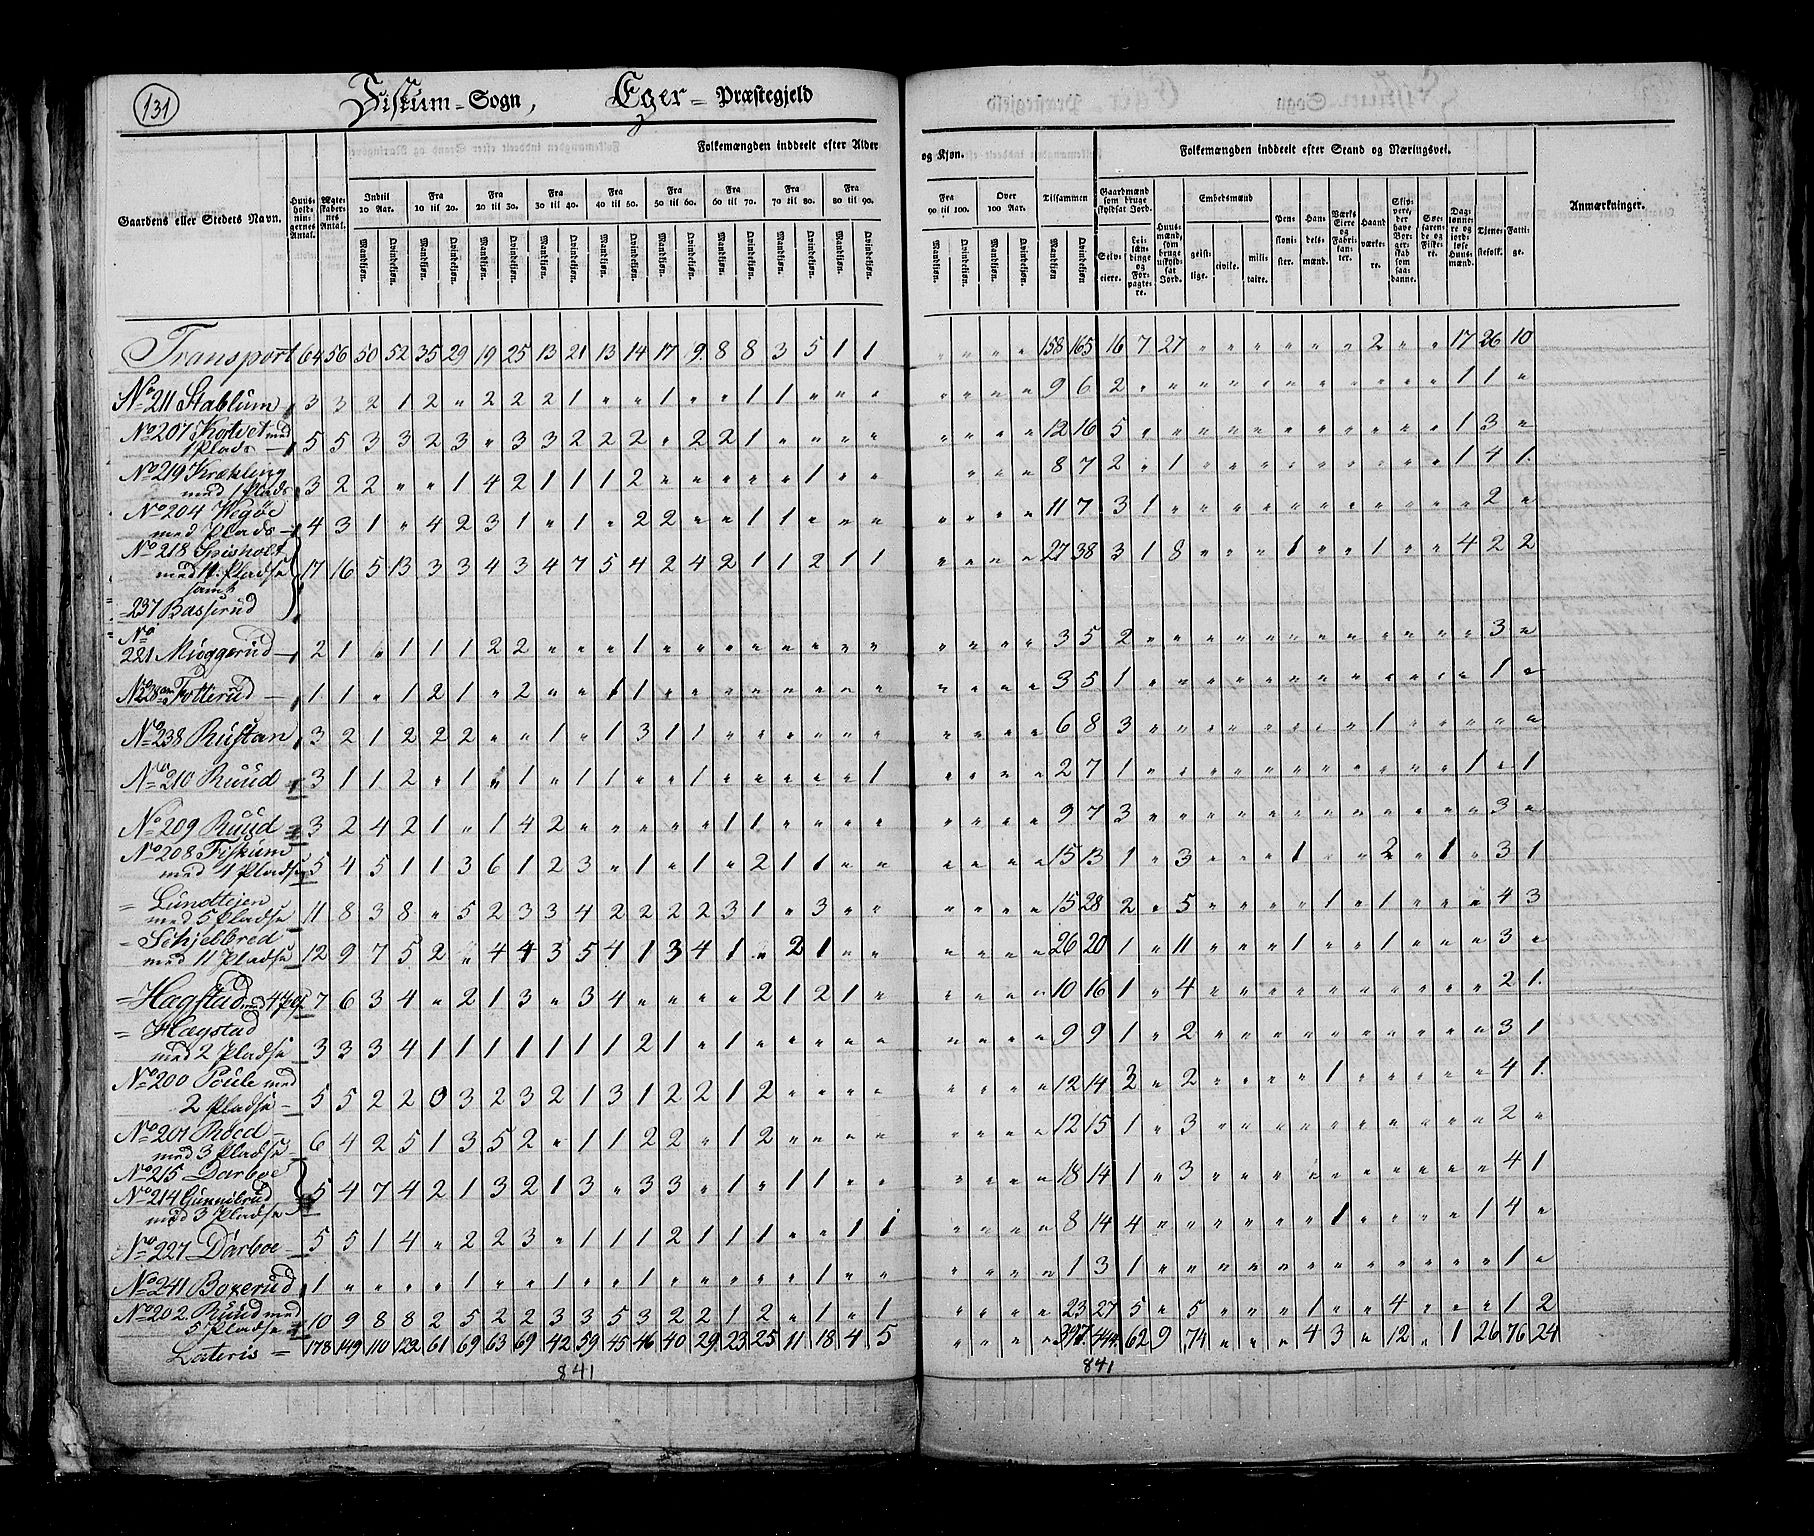 131
Fiskum - Sogn, Eger = Præstegjeld
Gaardens eller Stedets Navn.
Huus-holdningernes Antal.
Ægteskabernes Antal.
Folkemængden inddeelt efter Alder og Kjøn.
Indtil 10 Aar.
Fra 10 til 20.
Fra 20 til 30.
Fra 30 til 40.
Fra 40 til 50.
Fra 50 til 60.
Fra 60 til 70.
Fra 70 til 80.
Fra 80 til 90.
Fra 90 til 100.
Over 100 Aar.
Tilsammen
Mandkjøn. Qvindekjøn.
Folkemængden inddeelt efter Stand og Næringsvei.
Gaardmænd som bruge skyldsat Jord.
Selveiere.
Leilændinge og Forpagtere.
Huusmænd, som bruge uskyldsat Jord.
Embedsmænd
geistlige.
civile.
militaire.
Pensionister.
Handelsmænd.
Værkseiere og Fabrikanter.
Haandværkere.
Søefarende og Fiskere.
Daglønnere og jordløse Huusmænd.
Tjenestefolk.
Fattige.
Anmærkninger.
Transport 64 56 50 52 35 29 19 25 13 21 13 14 17 9 8 8 3 5 1 1 " " " " 158 165 16 7 27 " " " " " " 2 " " 17 26 10
No 211 Stablum 3 3 2 1 2 " 2 2 2 1 " " 1 " " 1 1 " " " " " " 9 6 2 " " " " " " " " " " " 1 1 "
No 207 Kortvet med
1 Plads 5 5 3 3 2 3 " 3 3 2 2 2 " 2 2 1 " " " " " " " " 12 16 5 " " " " " " " " " " " 1 3 "
No 219 Krækling
med 1 Plads 3 2 2 " " 1 4 2 1 1 1 2 " " " " " 1 " " " " " 8 7 2 " 1 " " " " " " " " " 1 4 1
No 204
med Plads 4 3 1 " 4 2 3 1 " 1 " 2 2 " " 1 1 " " " " " " " 11 7 3 1 " " " " " " " " " " " 2 "
No 218
med 11 Pladse 17 16 5 13 3 3 4 3 4 7 5 4 2 4 2 1 1 2 1 1 " " " " 27 38 3 1 8 " " " 1 " " 1 " " 4 2 2
samt
237 Basserud
No
221 Muggerud 2 1 " 1 1 1 2 2 " " " 1 " " " " " " " " " " " " 3 5 2 " " " " " " " " " " " " 3 "
No 228 Totterud 1 1 " 1 2 1 " 2 " " 1 1 " " " " " " " " " " " " 3 5 1 " " " " " " " " " " " " 1 "
No 238 Rustan 3 2 1 2 2 2 " " 1 " 1 3 1 1 " " " " " " " " " " 6 8 3 " " " " " " " " 1 " " " " "
No 210 Ruud 3 1 1 2 " 1 " 1 " 1 1 " " 1 " " " " " 1 " " " " 2 7 1 " " " " " " " " " " " 1 " 1
No 209 Ruud 3 2 4 2 1 " 1 4 2 " " " " " 1 1 " " " " " " " " 9 7 3 " " " " " " " " " " " " 3 "
No 208 Fiskum
med 4 Pladse 5 4 5 1 1 3 6 1 2 3 " 1 " 1 " 2 1 1 " " " " " " 15 13 1 " 3 " " " 1 " " 2 " 1 " 3 1
= Lundtejen
med 5 Pladse 11 8 3 8 " 5 2 3 3 4 2 2 2 2 3 1 " 3 " " " " " " 15 28 2 " 5 " " " " 1 " 1 " " " 4 3
= Schjelbred
med 11 Pladse 12 9 7 5 2 " 4 4 3 5 4 1 3 4 1 " 2 1 " " " " " " 26 20 1 " 11 " " " 1 " " 1 " " " 3 "
= Hagstad m 4 7 6 3 4 " 2 1 3 " 3 4 " " " " 2 1 2 1 " " " " " 10 16 1 " 4 " " " " " " " " " " 2 1.
= Hægstad
med 2 Pladse 3 3 3 4 1 1 1 1 1 1 1 2 1 " 1 " " " " " " " " " 9 9 1 " 2 " " " " " " " " " " 3 1
No 200 Poule med
2 Pladse 5 5 2 2 0 3 2 3 2 1 3 1 2 2 1 2 " " " " " " " " 12 14 3 " 2 " " " " 1 " " " " " 4 1.
No 201 Roed
med 3 Pladse 6 4 2 5 1 3 5 2 " 1 1 2 2 " 1 2 " " " " " " " " 12 15 1 " 3 " " " " " " " " " " 2 "
No 215 Darboe
No 214 Gunnibrud
med 3 Pladse 5 4 7 4 2 1 3 2 1 3 " 3 3 " 1 " 1 1 " " " " " " 18 14 1 " 3 " " " " " " " " " " 4 1
No 227 Darboe 5 5 1 4 " 2 2 3 " 1 1 1 2 1 1 1 " " 1 1 " " " " 8 14 4 " " " " " " 1 " " " " 1 4 "
No 241 Boxerud 1 " " " " 1 " " 1 " " 1 " " " " " 1 " " " " " " 1 3 1 " " " " " " " " " " " " 1 "
No 202 Ruud med
5 Pladse 10 9 8 8 2 5 2 2 3 3 5 3 2 2 1 2 " 1 " 1 " " " " 23 27 5 " 5 " " " 1 " " 4 " " " 1 2
Lateris = 178 149 110 122 61 69 63 69 42 59 45 46 40 29 23 25 11 18 4 5 " " " " 397 444 62 9 74 " " " 4 3 " 12 " 1 26 76 24
841 841